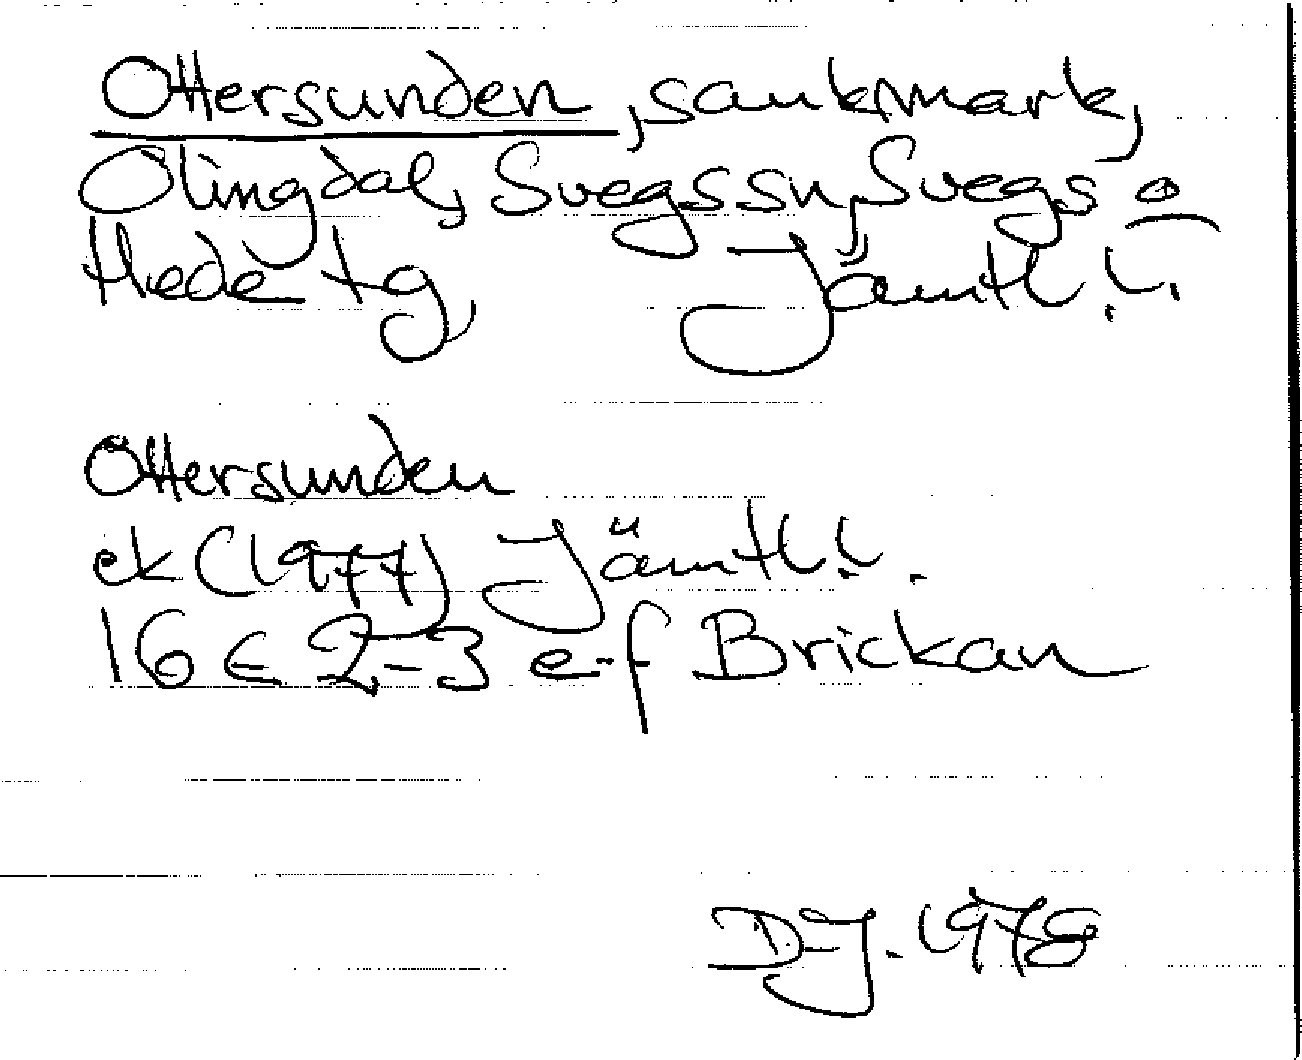 Ottersunden, sankmark,
Ölingdal, Svegs sn, Svegs o
Hede tg, Jämtl. l.
Ottersunden
ek (1977) Jämtl. l.
16 E 2-3 e-f Brickan
DJ. 1978